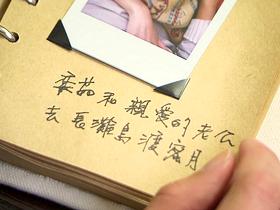 安茹和親愛的老公
去長灘島渡蜜月